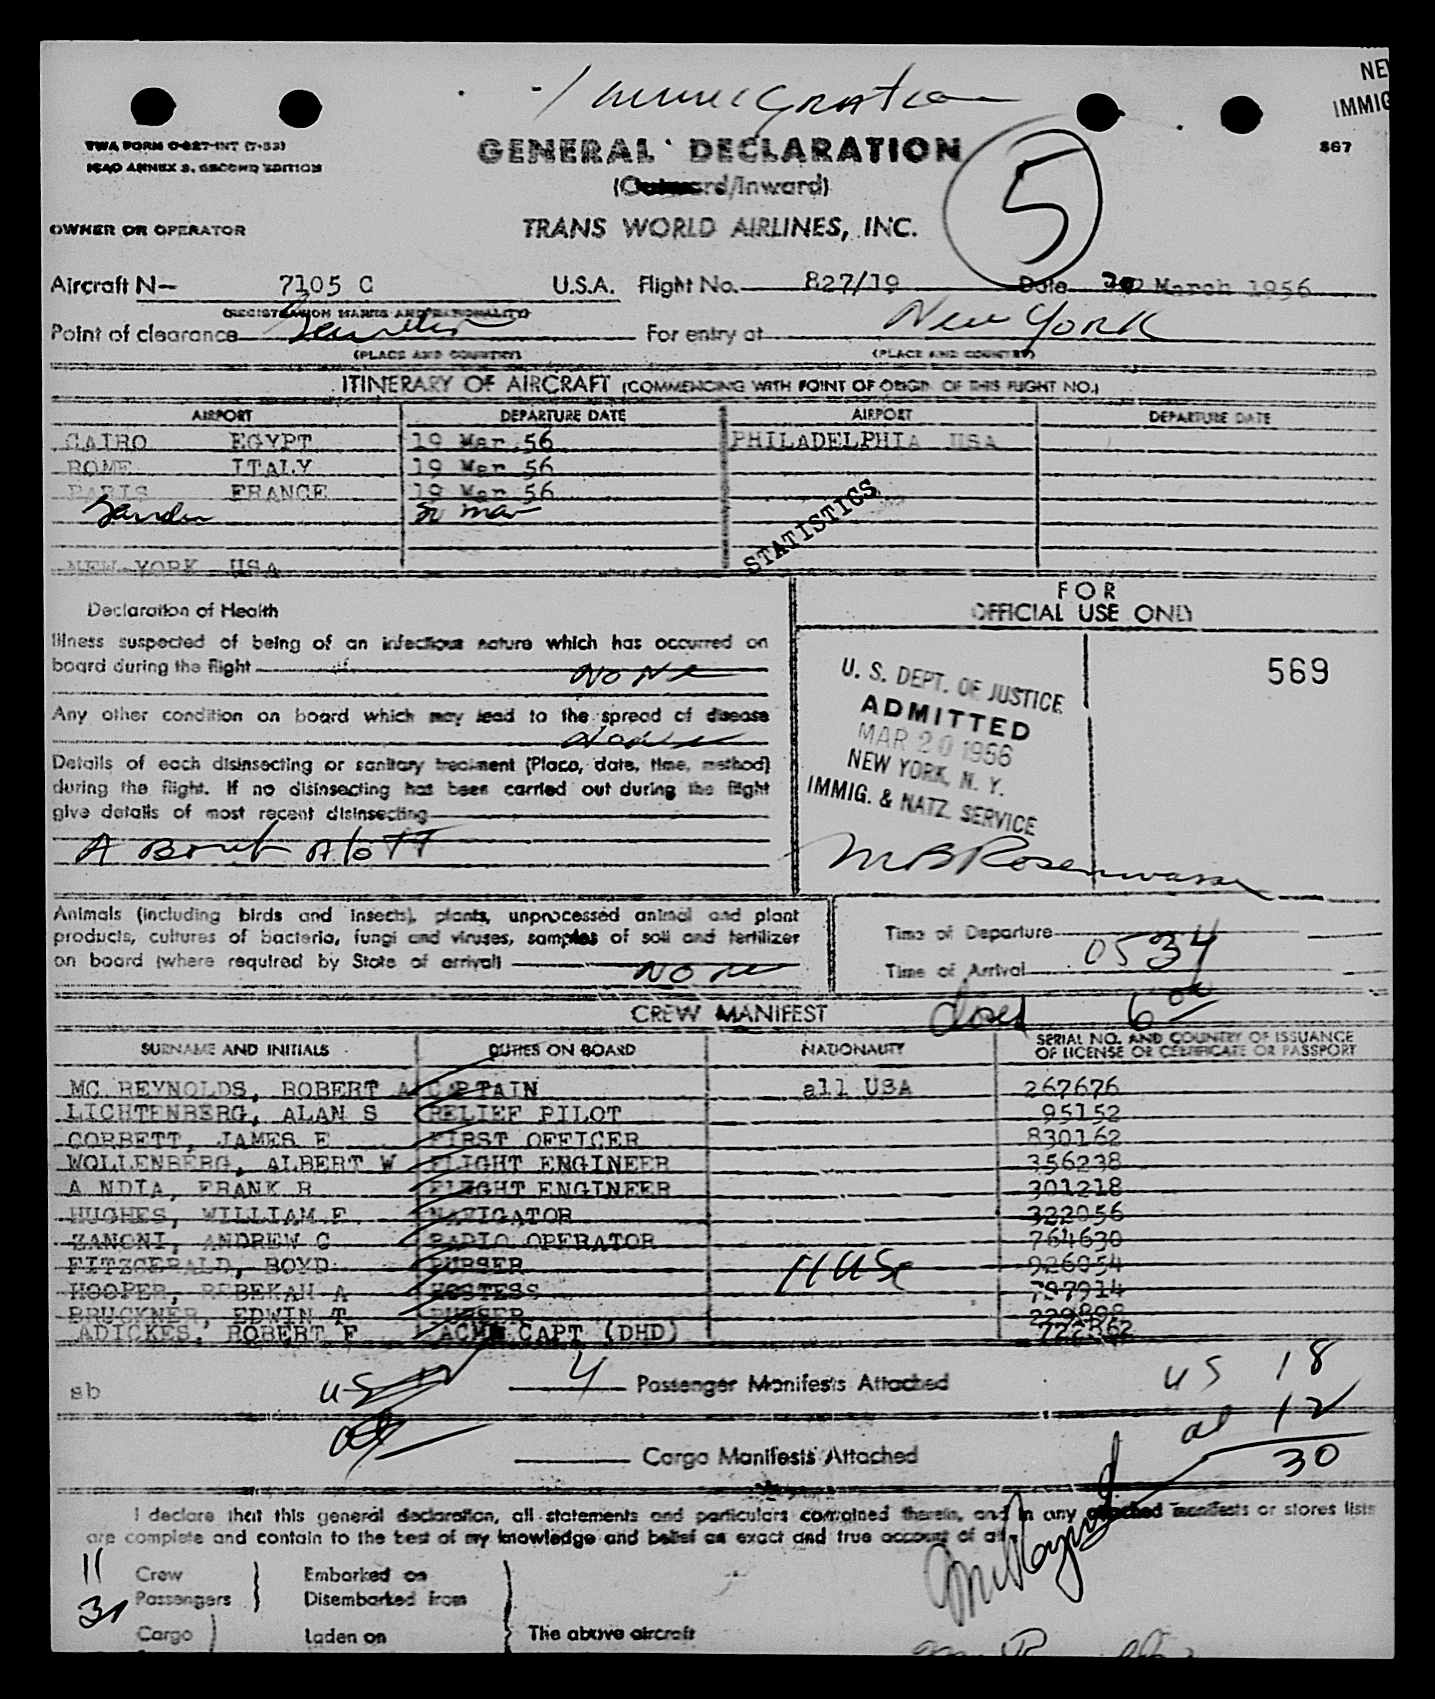 Immigration
NEW
IMMIG
TWA FORM O-827-INT (7-53)
ICAO ANNEX 9, SECOND EDITION
GENERAL DECLARATION
567
(Outward/Inward)
5
OWNER OR OPERATOR
TRANS WORLD AIRLINES, INC.
Aircraft N— 7105 C U.S.A. Flight No. 827/19 Date March 1956
(REGISTRATION MARKS AND NATIONALITY)
Point of clearance For entry at New York
(PLACE AND COUNTRY) (PLACE AND COUNTRY)
ITINERARY OF AIRCRAFT (COMMENCING WITH POINT OF ORIGIN OF THIS FLIGHT NO.)
AIRPORT DEPARTURE DATE AIRPORT DEPARTURE DATE
CAIRO EGYPT 19 Mar 56 PHILADELPHIA USA
ROME ITALY 19 Mar 56
PARIS FRANCE 19 Mar 56
Gander 20 mar
STATISTICS
NEW YORK USA
FOR
OFFICIAL USE ONLY
Declaration of Health
Illness suspected of being of an infectious nature which has occurred on
board during the flight None
569
Any other condition on board which may lead to the spread of disease
None
U. S. DEPT. OF JUSTICE
ADMITTED
MAR 20 1956
NEW YORK, N. Y.
IMMIG. & NATZ. SERVICE
Details of each disinsecting or sanitary treatment (Place, date, time, method)
during the flight. If no disinsecting has been carried out during the flight
give details of most recent disinsecting
MB Rosenwasser
Animals (including birds and insects), plants, unprocessed animal and plant
products, cultures of bacteria, fungi and viruses, samples of soil and fertilizer
on board (where required by State of arrival) None
Time of Departure
Time of Arrival 0534
closed 6 00
CREW MANIFEST
SURNAME AND INITIALS DUTIES ON BOARD NATIONALITY SERIAL NO. AND COUNTRY OF ISSUANCE
OF LICENSE OR CERTIFICATE OR PASSPORT
MC REYNOLDS, ROBERT A CAPTAIN all USA 267676
LICHTENBERG, ALAN S RELIEF PILOT 95152
CORBETT, JAMES E FIRST OFFICER 830162
WOLLENBERG, ALBERT W FLIGHT ENGINEER 356238
A NDIA, FRANK R FLIGHT ENGINEER 301218
HUGHES, WILLIAM F NAVIGATOR 322056
ZANONI, ANDREW C RADIO OPERATOR 764630
FITZGERALD, BOYD PURSER 926054
11 USC
HOOPER, REBEKAH A HOSTESS 797914
BRUCKNER, EDWIN T PURSER
ADICKES, ROBERT F ACMM CAPT (DHD) 722862
sb
4 Passenger Manifests Attached
US 18
al 12
30
Cargo Manifests Attached
I declare that this general declaration, all statements and particulars contained therein, and in any attached manifests or stores lists
are complete and contain to the best of my knowledge and belief an exact and true account of all
11 Crew Embarked on
Passengers Disembarked from
Cargo Laden on The above aircraft